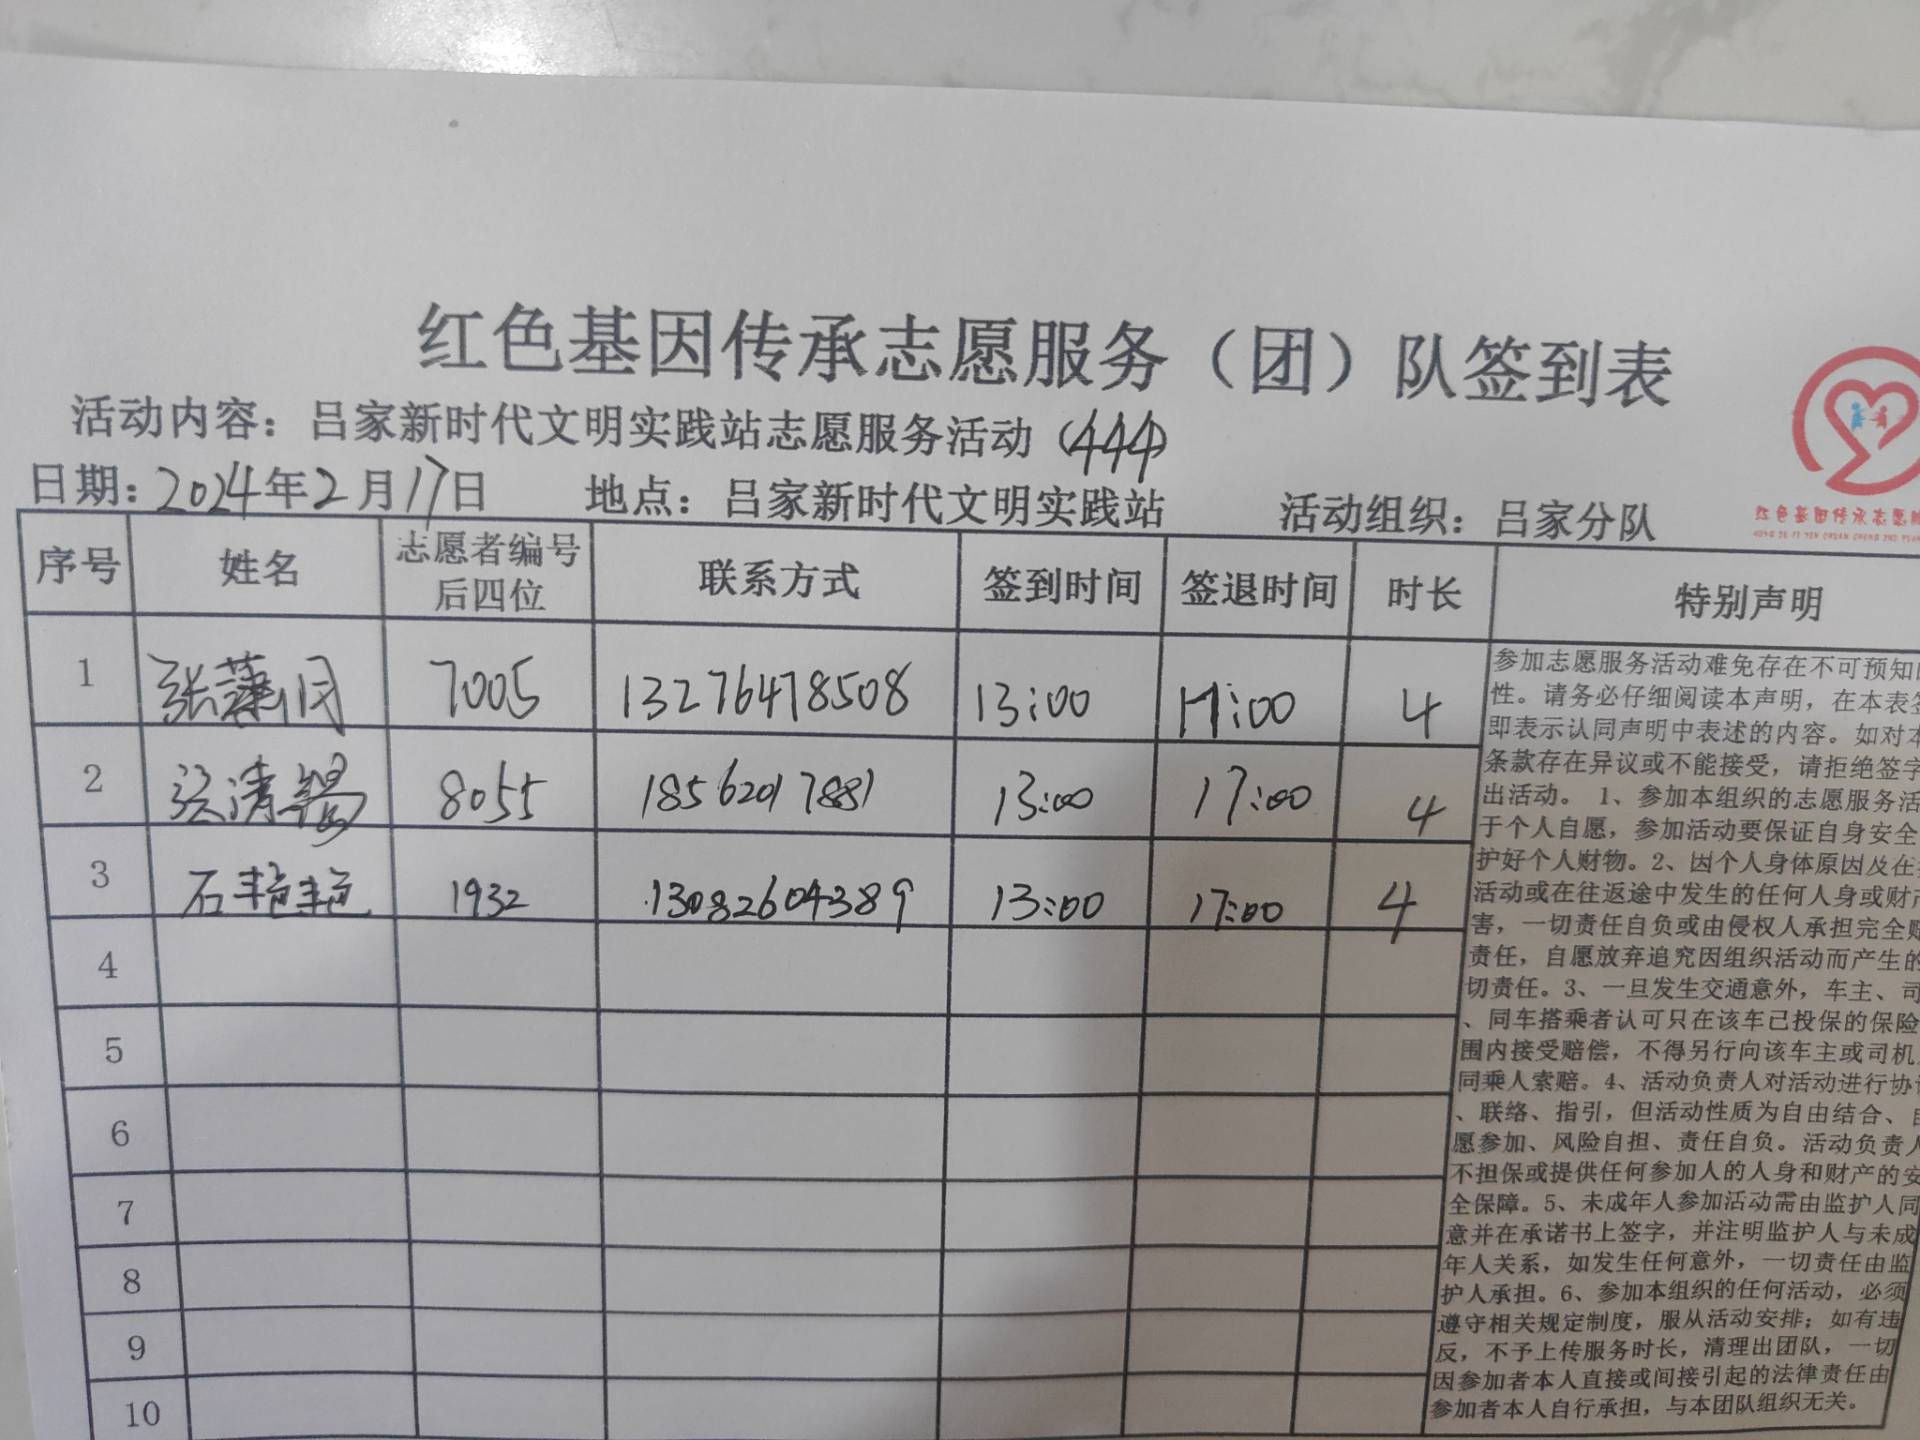 红色基因传承志愿服务（团）队签到表
活动内容：吕家新时代文明实践站志愿服务活动（444）
日期：2024年2月17日 地点：吕家新时代文明实践站 活动组织：吕家分队
红色基因传承志愿服
序号 姓名 志愿者编号后四位 联系方式 签到时间 签退时间 时长 特别声明
1 张 7005 13276478508 13:00 17:00 4
2 张清 8055 18562017881 13:00 17:00 4
3 石艳艳 1932 13082604389 13:00 17:00 4
4
5
6
7
8
9
10
参加志愿服务活动难免存在不可预知
性。请务必仔细阅读本声明，在本表签
即表示认同声明中表述的内容。如对本
条款存在异议或不能接受，请拒绝签字
出活动。 1、参加本组织的志愿服务活
于个人自愿，参加活动要保证自身安全
护好个人财物。2、因个人身体原因及在
活动或在往返途中发生的任何人身或财产
害，一切责任自负或由侵权人承担完全赔
责任，自愿放弃追究因组织活动而产生的
切责任。3、一旦发生交通意外，车主、司
、同车搭乘者认可只在该车已投保的保险
围内接受赔偿，不得另行向该车主或司机
同乘人索赔。4、活动负责人对活动进行协
、联络、指引，但活动性质为自由结合、自
愿参加、风险自担、责任自负。活动负责人
不担保或提供任何参加人的人身和财产的安
全保障。5、未成年人参加活动需由监护人同
意并在承诺书上签字，并注明监护人与未成
年人关系，如发生任何意外，一切责任由监
护人承担。6、参加本组织的任何活动，必须
遵守相关规定制度，服从活动安排；如有违
反，不予上传服务时长，清理出团队，一切
因参加者本人直接或间接引起的法律责任由
参加者本人自行承担，与本团队组织无关。